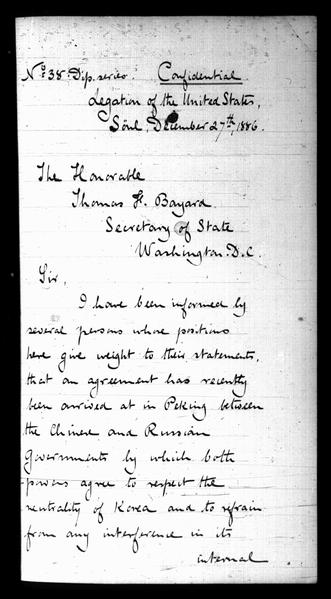 No 38. Dip. series. Confidential
Legation of the United States,
Söul, December 27th, 1886.
The Honorable
Thomas F. Bayard
Secretary of State
Washington. D.C.
Sir,
I have been informed by
several persons whose positions
here give weight to their statements,
that an agreement has recently
been arrived at in Peking between
the Chinese and Russian
Governments by which both
powers agree to respect the
neutrality of Korea and to refrain
from any interference in its
internal